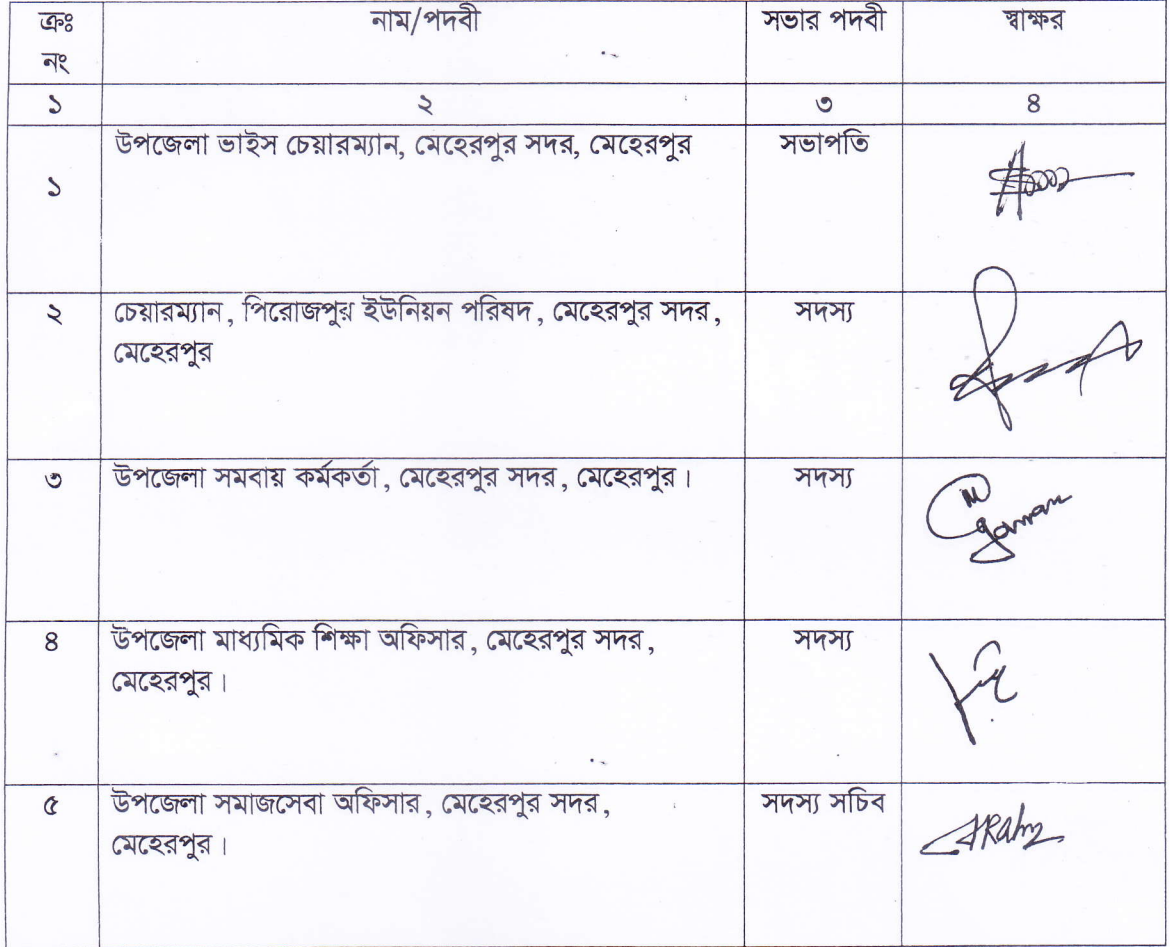 ক্রঃ নাম/পদবী সভার পদবী স্বাক্ষর
নং
১ ২ ৩ ৪
উপজেলা ভাইস চেয়ারম্যান, মেহেরপুর সদর, মেহেরপুর সভাপতি
১
২ চেয়ারম্যান, পিরোজপুর ইউনিয়ন পরিষদ, মেহেরপুর সদর, সদস্য
মেহেরপুর
৩ উপজেলা সমবায় কর্মকর্তা, মেহেরপুর সদর, মেহেরপুর। সদস্য
৪ উপজেলা মাধ্যমিক শিক্ষা অফিসার, মেহেরপুর সদর, সদস্য
মেহেরপুর।
৫ উপজেলা সমাজসেবা অফিসার, মেহেরপুর সদর, সদস্য সচিব
মেহেরপুর।